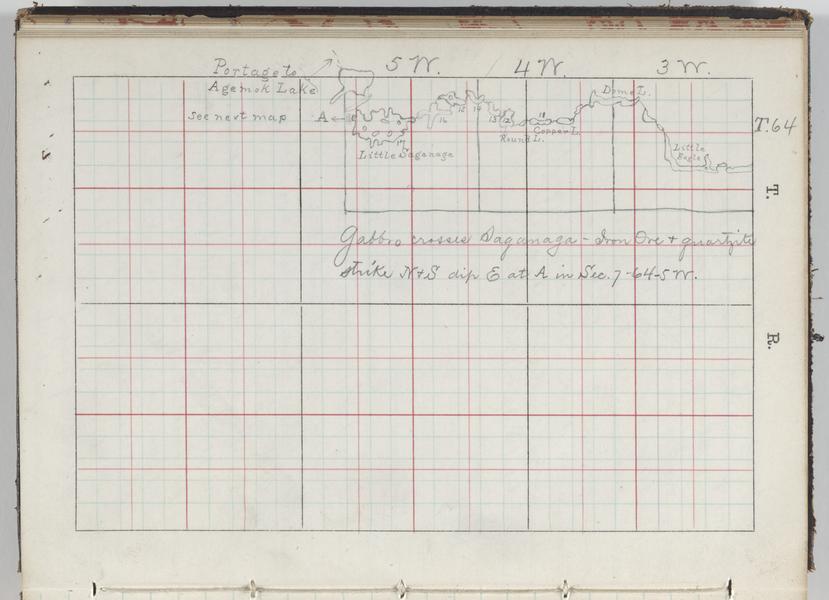 5 W. 4 W. 3 W.
Portage to
Agemok Lake
see next map
A
T. 64
Dome L.
16 15 14 13 12 11
Copper L.
Round L.
17
Little Saganaga
Little
Eagle
T.
Gabbro crosses Saganaga - Iron Ore + quartzite
strike N+S dip E at A in Sec. 7-64-5 W.
R.